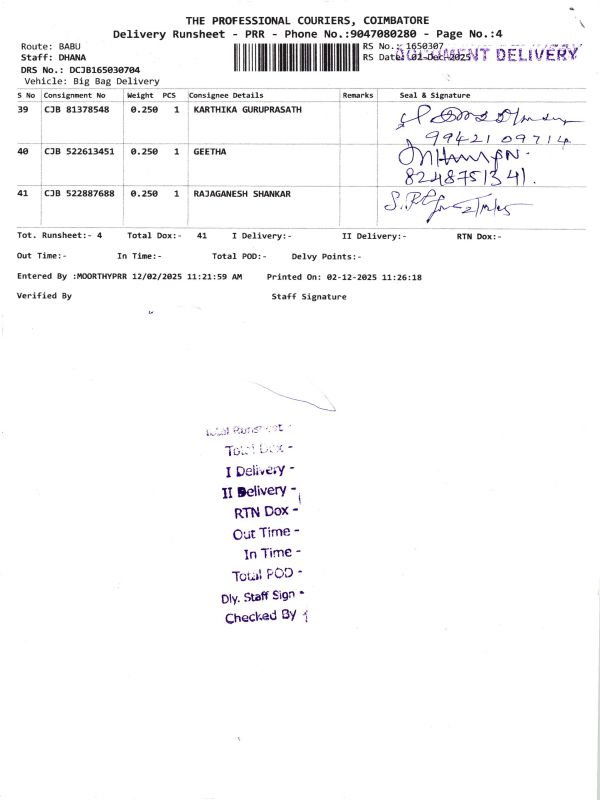 THE PROFESSIONAL COURIERS, COIMBATORE
Delivery Runsheet - PRR - Phone No.:9047080280 - Page No.:4
Route: BABU
RS No.: 1650307
Staff: DHANA
RS Date: 02-Dec-2025
DOCUMENT DELIVERY
DRS No.: DCJB165030704
Vehicle: Big Bag Delivery
S No Consignment No Weight PCS Consignee Details Remarks Seal & Signature
39 CJB 81378548 0.250 1 KARTHIKA GURUPRASATH
99421 09714
40 CJB 522613451 0.250 1 GEETHA
8248751341.
41 CJB 522887688 0.250 1 RAJAGANESH SHANKAR
Tot. Runsheet:- 4 Total Dox:- 41 I Delivery:- II Delivery:- RTN Dox:-
Out Time:- In Time:- Total POD:- Delvy Points:-
Entered By :MOORTHYPRR 12/02/2025 11:21:59 AM Printed On: 02-12-2025 11:26:18
Verified By Staff Signature
Total Runsheet -
Total Dox -
I Delivery -
II Delivery -
RTN Dox -
Out Time -
In Time -
Total POD -
Dly. Staff Sign -
Checked By